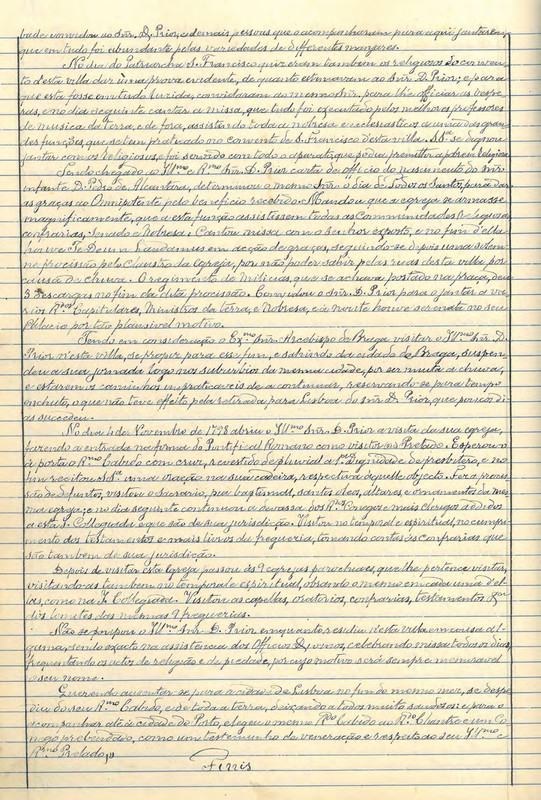 bade convidou ao Snr. D. Prior, e demais pessoas que o acompanharam para aqui jantarem,
que em tudo foi abundante pelas variedades de differentes manjares.
No dia do Patriarcha S. Francisco quizeram tambem os religiosos do conven-
to d'esta villa dar uma prova evidente, de quanto estimavam ao Snr. D. Prior; e para
que esta fosse em tudo luzida, convidaram ao mesmo Snr. para lhe officiar as vespe-
ras, e no dia seguinte cantar a missa, que tudo foi executado pelos melhores professores
de musica da terra, e de fora, assistindo toda a nobresa e ecclesiasticos a uma das gran
des funcções que se tem praticado no convento de S. Francisco d'esta villa. S. Sª se dignou
jantar com os religiosos, e foi servido com todo o aparato, que podia premittir a pobresa religiosa
Tendo chegado ao Illmo e Rmo Snr. D. Prior carta de officio do nascimento do Snr.
infante D. Pedro de Alcantara, determinou o mesmo Snr. o dia de Todos os Santos, para dar
as graças ao Omnipotente pelo beneficio recebido. Mandou que a egreja se armasse
magnificamente, que a esta função assistessem todas as Communidades Religiosas
confrarias, Senado e Nobresa. Cantou missa com o Senhor exposto, e no fim d'ella
houve Te Deum Laudamus em acção de graças, seguindo-se depois uma solem-
ne procissão pelo Claustro da Egreja, por não poder sahir pelas ruas desta villa por
causa da chuva. O regimento de Milicias, que se achava postado na praça, deu
3 descargas no fim da dita procissão. Convidou o Snr. D. Prior para o jantar a va-
rios Rmos Capitulares, Ministros da terra, e Nobresa, e á noite houve serenata no seu
Palacio por tão plausivel motivo.
Tendo em consideração o Exmo Snr. Arcebispo de Braga visitar o Illmo Snr. D.
Prior n'esta villa, se propoz para esse fim, e sahindo da cidade de Braga, suspen-
deu a sua jornada logo nos suburbios da mesma cidade, por ser muita a chuva,
e estarem os caminhos impraticaveis de a continuar, reservando-se para tempo
enchuto, o que não teve effeito pela retirada para Lisboa do Snr. D. Prior, que poucos di-
as succedeu.
No dia 4 de Novembro de 1798 abriu o Illmo Snr. D. Prior a visita da sua egreja,
fazendo a entrada na forma do Pontifical Romano como visitador e Prelado. Esperou-o
á porta o Rmo Cabido com cruz, revestido de pluvial a 1ª Dignidade de presbitero, e no
fim recitou S. Sª uma oração na sua cadeira, respectiva áquelle objecto. Fez a procis-
são de defuntos, visitou o sacrario, pia baptismal, santos oleos, altares, e ornamentos da mes-
ma egreja; e no dia seguinte continuou a devassa dos Rmos Conegos e mais clerigos addidos
a esta I. Collegiada e que são de sua jurisdicção. Visitou no temporal e espiritual, no cumpri-
mento dos testamentos e mais livros da freguezia, tomando contas ás confrarias que
são tambem de sua jurisdicção.
Depois de visitar esta Egreja passou ás 9 egrejas parochiaes, que lhe pertence visitar,
visitando-as tambem no temporal e espiritual, obrando o mesmo em cada uma d'el-
las, como na I. Collegiada. Visitou as capellas, oratorios, confrarias, testamentos
dos lemites das mesmas 9 freguezias.
Não se poupou o Illmo Snr. D. Prior emquanto residiu n'esta villa em cousa al-
guma, sendo exacto na assistencia dos Officios Divinos, celebrando missa todos os dias,
frequentando os actos de religião e de piedade, por cujo motivo será sempre memoravel
o seu nome.
Querendo ausentar-se para a cidade de Lisboa no fim do mesmo mez, se despe-
diu do seu Rmo Cabido, e de toda a terra, deixando a todos muito saudosos; e para o
acompanhar até á cidade do Porto, elegeu o mesmo Rmo Cabido ao Rdo Chantre e um Co-
nego prebendado, como um testemunho da veneração e respeito ao seu Illmo e
Rmo Prelado.
Finis